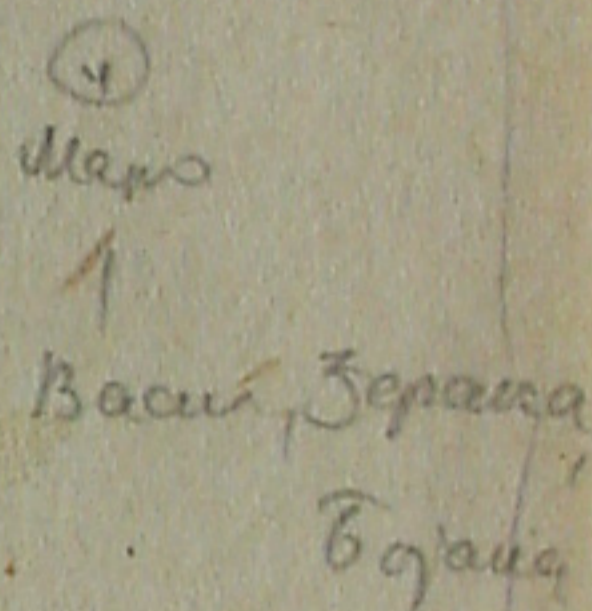 4
Маро
1
Васи, Зерака,
Бојана